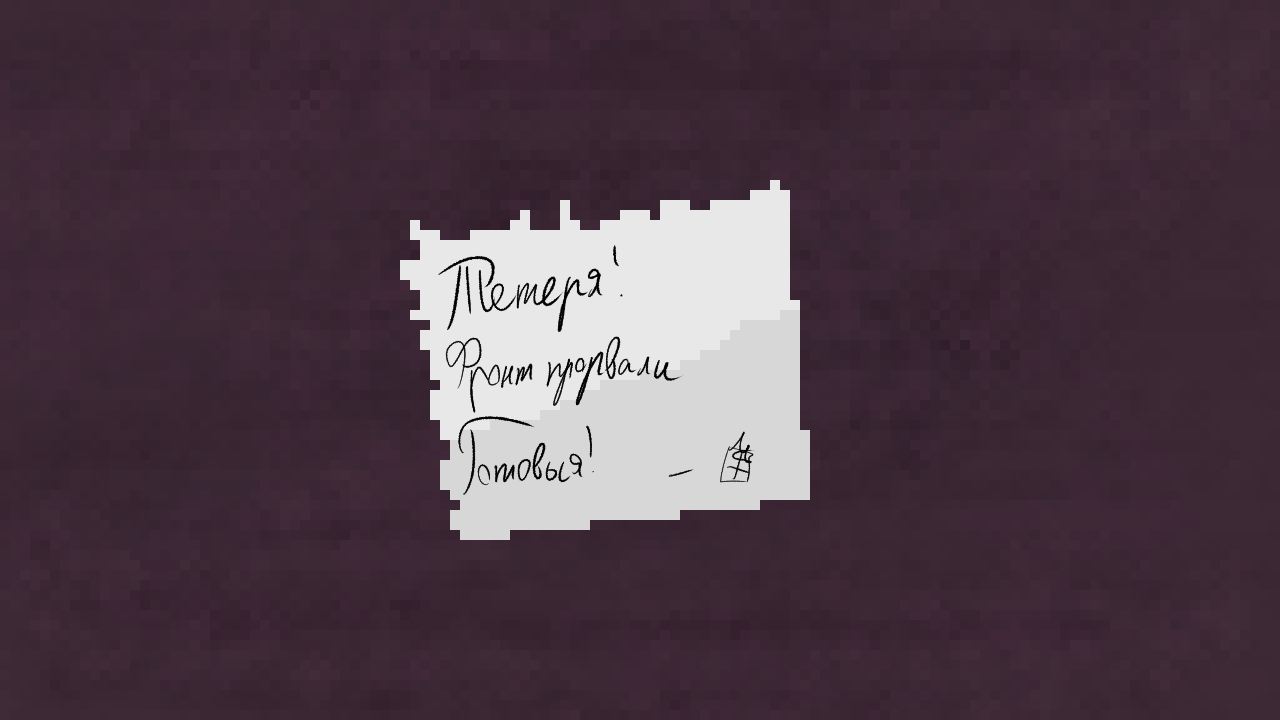 Тетеря!
Фронт прорвали
Готовься!
—